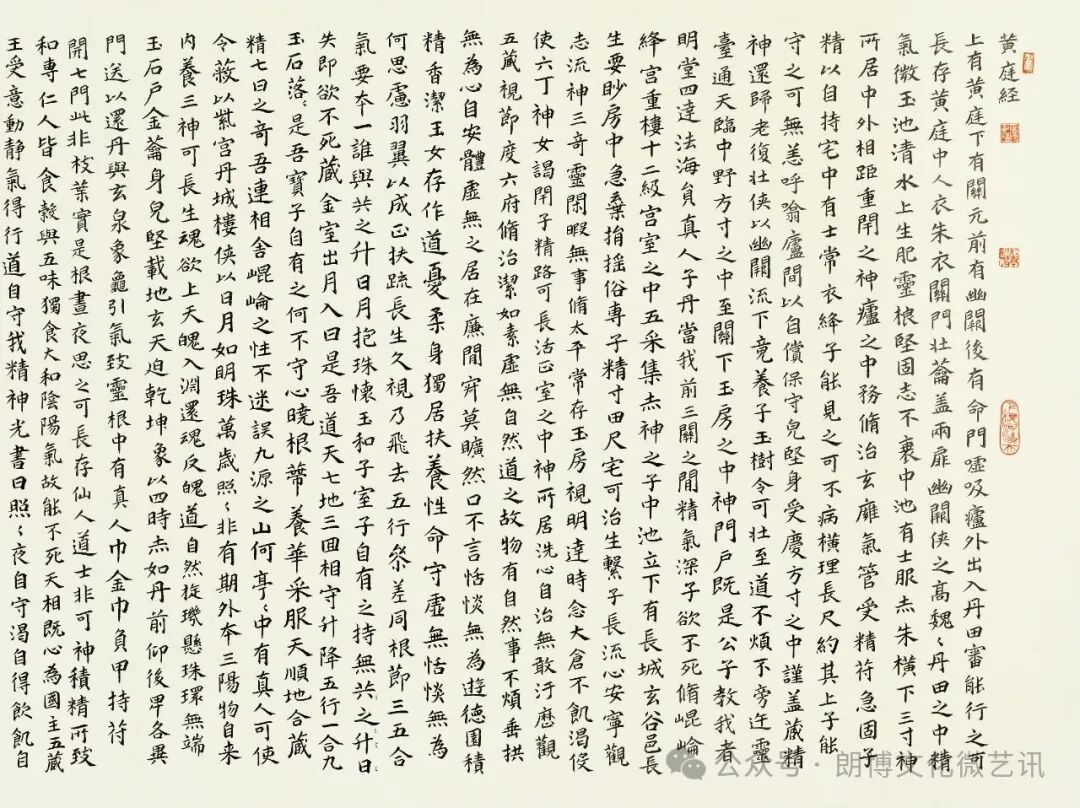 黄庭经
上有黄庭下有關元前有幽闕後有命門噓吸廬外出入丹田審能行之可
長存黄庭中人衣朱衣關門壯蘥盖兩扉幽闕侠之髙魏〻丹田之中精
氣微玉池清水上生肥靈根堅固志不衰中池有士服赤朱横下三寸神
所居中外相距重閇之神廬之中務脩治玄䧹氣管受精符急固子
精以自持宅中有士常衣絳子能見之可不病横理長尺約其上子能
守之可無恙呼噏廬間以自償保守皃堅身受慶方寸之中謹盖蔵精
神還歸老復壯侠以幽闕流下竟養子玉樹令可壯至道不煩不旁迕靈
臺通天臨中野方寸之中至關下玉房之中神門户既是公子教我者
明堂四達法海負真人子丹當我前三關之間精氣深子欲不死脩崐崘
絳宫重樓十二級宫室之中五采集赤神之子中池立下有長城玄谷邑長
生要眇房中急棄捐摇俗専子精寸田尺宅可治生繫子長流心安寧觀
志流神三奇靈閑暇無事脩太平常存玉房視明達時念大倉不飢渴役
使六丁神女謁閇子精路可長活正室之中神所居洗心自治無敢汙歷觀
五蔵視節度六府脩治潔如素虚無自然道之故物有自然事不煩垂拱
無為心自安體虚無之居在廉間寂莫曠然口不言恬惔無為遊徳園積
精香潔玉女存作道憂柔身獨居扶養性命守虚無恬惔無為
何思慮羽翼以成正扶疏長生久視乃飛去五行参差同根節三五合
氣要夲一誰與共之升日月抱珠懷玉和子室子自有之持無失即
失即欲不死蔵金室出月入日是吾道天七地三回相守升降五行一合九
玉石落〻是吾寶子自有之何不守心曉根蔕養華采服天順地合蔵
精七日之奇吾連相舍崐崘之性不迷誤九源之山何亭〻中有真人可使
令蔽以紫宫丹城樓侠以日月如明珠萬歲照〻非有期外夲三陽物自来
内養三神可長生魂欲上天魄入淵還魂反魄道自然㫌璣懸珠環無端
玉石户金蘥身皃堅載地玄天迫乾坤象以四時赤如丹前仰後卑各異
門送以還丹與玄泉象龜引氣致靈根中有真人巾金巾負甲持符
開七門此非枝葉實是根晝夜思之可長存仙人道士非可神積精所致
和専仁人皆食穀與五味獨食大和陰陽氣故能不死天相既心為國主五蔵
王受意動静氣得行道自守我精神光晝日照〻夜自守渴自得飲飢自
公众号·朗博文化微艺讯